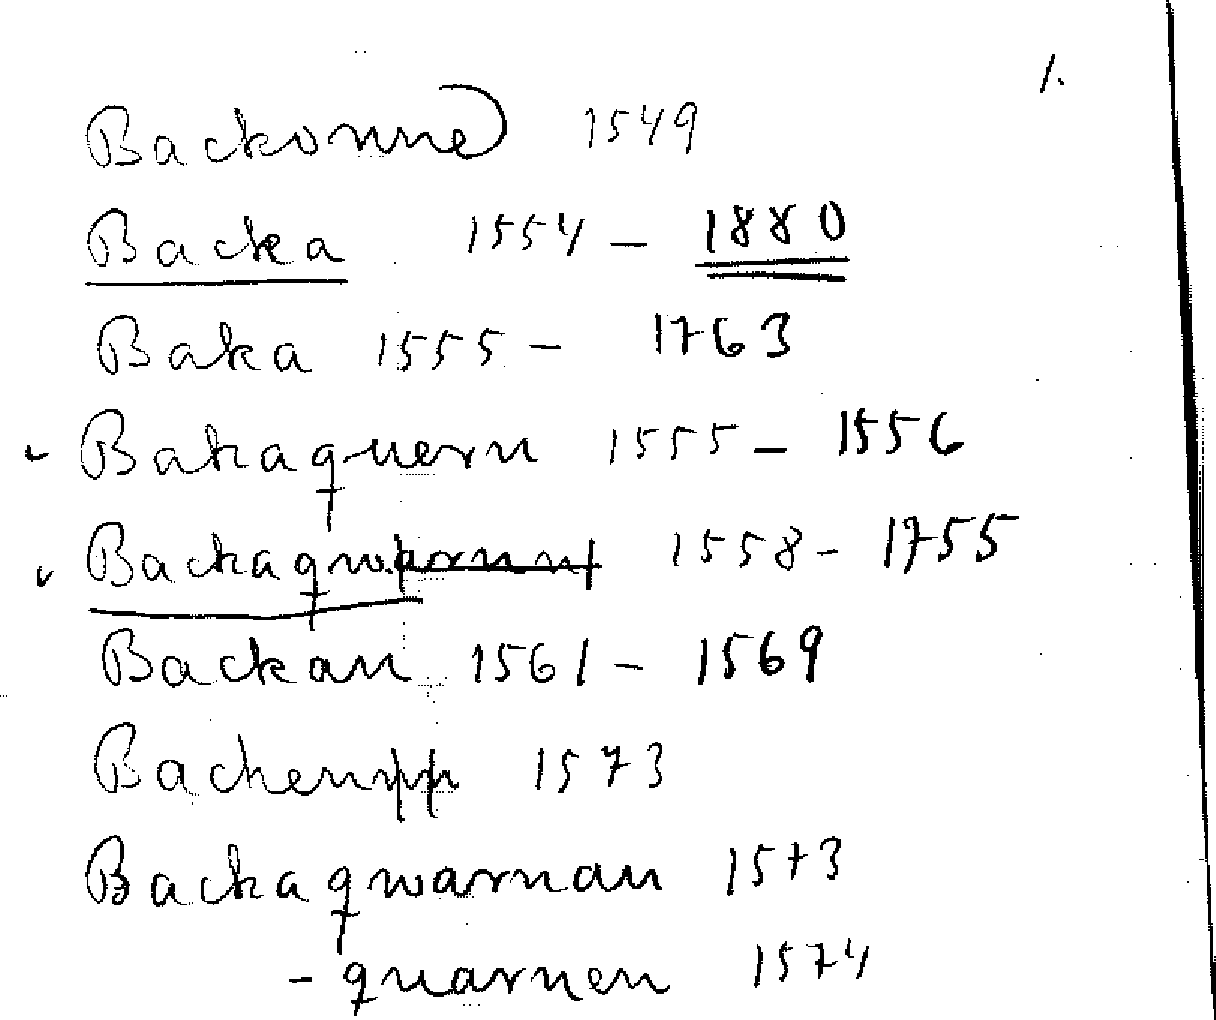 1.
Backonne) 1549
Backa 1554 - 1880
Baka 1555 - 1763
Bakaquern 1555 - 1556
Backaqw 1558 - 1755
Backan 1561 - 1569
1573
Backaqwarnan 1573
- quarnen 1574